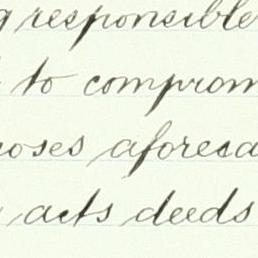 g responsible
to comprom
oses aforesa
acts deeds